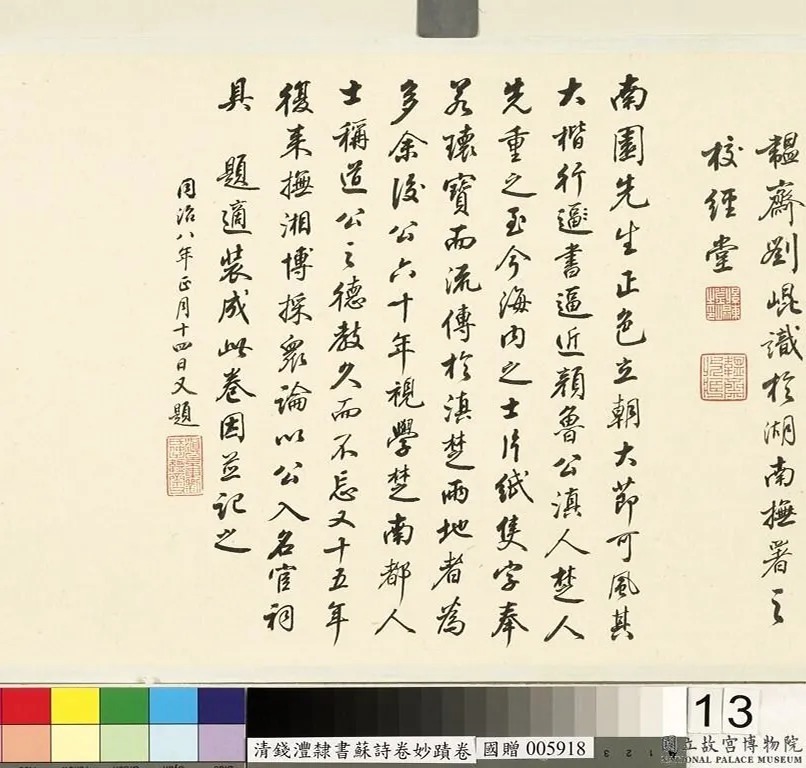 韞齋劉崐識於湖南撫署之
校經堂
南園先生正色立朝大節可風其
大楷行逼書逼近顏魯公滇人楚人
先重之至今海內之士片紙隻字奉
若瓌寶而流傳於滇楚兩地者為
多余後公六十年視學楚南都人
士稱道公之德教久而不忘又十五年
復來撫湘博採眾論以公入名宦祠
具 題適裝成此卷因並記之
同治八年正月十四日又題
清錢澧隸書蘇詩卷妙蹟卷
國贈 005918
13
國立故宮博物院
NATIONAL PALACE MUSEUM